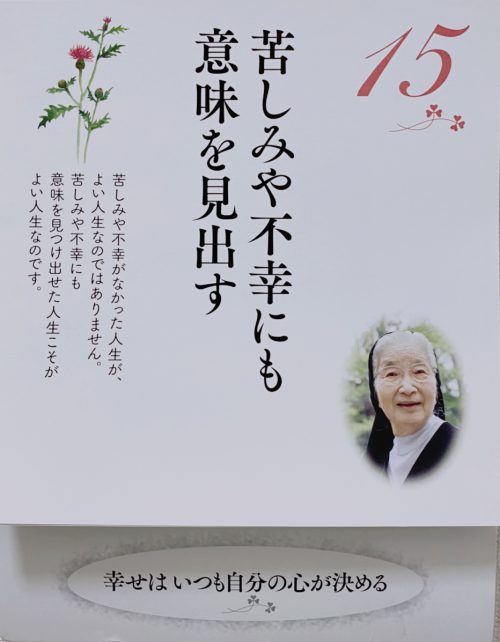 15
苦しみや不幸にも
意味を見出す
苦しみや不幸がなかった人生が、
よい人生なのではありません。
苦しみや不幸にも
意味を見つけ出せた人生こそが
よい人生なのです。
幸せは いつも自分の心が決める